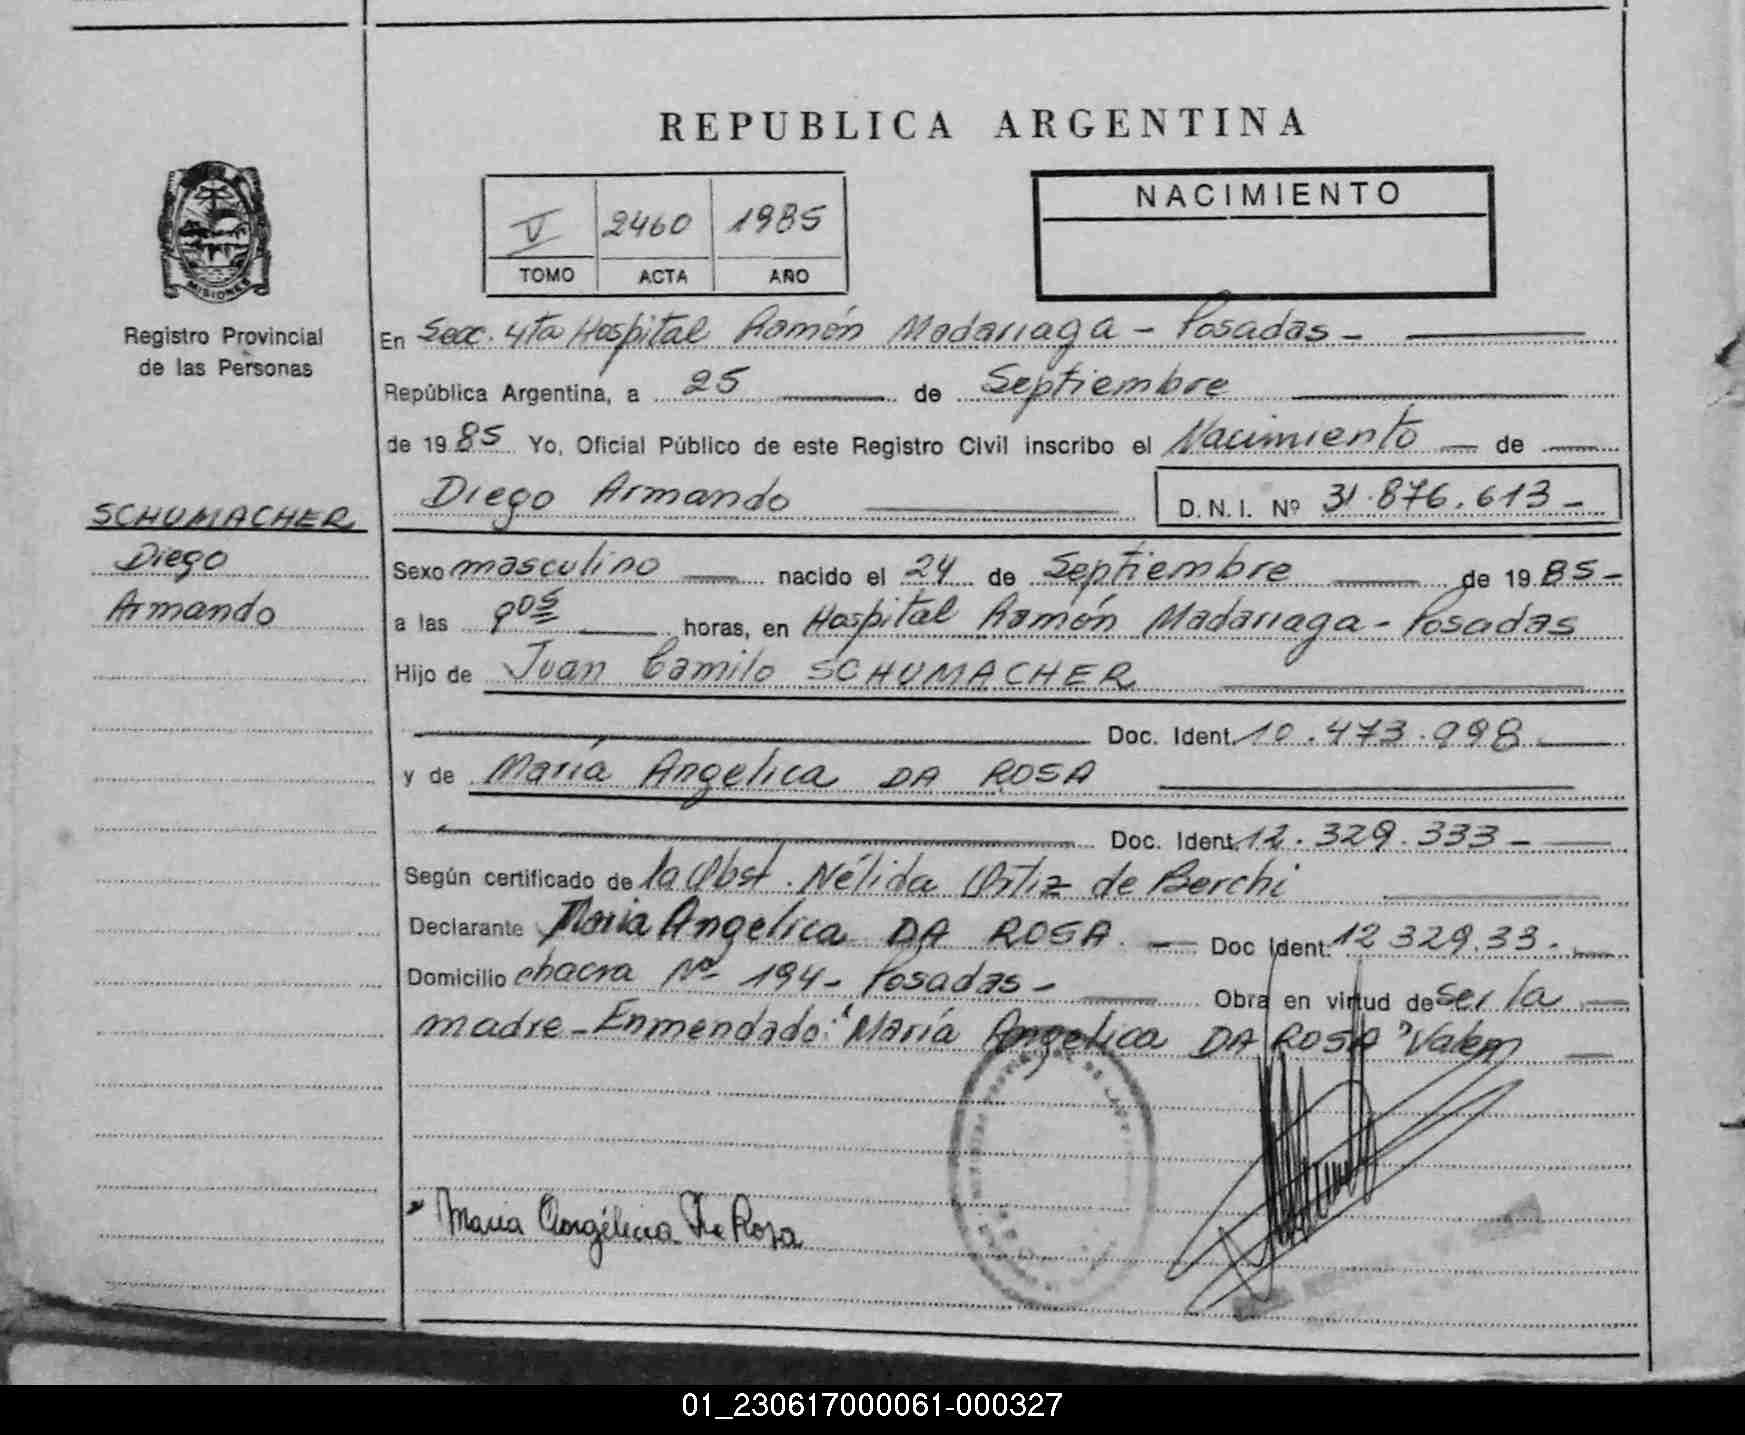 REPUBLICA ARGENTINA
V 2460 1985
TOMO ACTA AÑO
NACIMIENTO
MISIONES
Registro Provincial
de las Personas
SCHUMACHER
Diego
Armando
En Secc. 4ta Hospital Ramón Madariaga - Posadas -
República Argentina, a 25 de Septiembre
de 1985 Yo, Oficial Público de este Registro Civil inscribo el Nacimiento de
Diego Armando D.N.I. Nº 31.876.613 -
Sexo masculino nacido el 24 de Septiembre de 1985 -
a las 9 05 horas, en Hospital Ramón Madariaga - Posadas
Hijo de Juan Camilo SCHUMACHER
Doc. Ident. 10.473.998
y de María Angélica DA ROSA
Doc. Ident. 12.329.333 -
Según certificado de la Obst. Nélida Ortiz de Berchi
Declarante María Angélica DA ROSA - Doc Ident. 12 329.33.
Domicilio chacra Nº 194 - Posadas - Obra en virtud de ser la
madre - Enmendado: "María Angélica DA ROSA" Valen
Maria Angélica Da Rosa
01_230617000061-000327